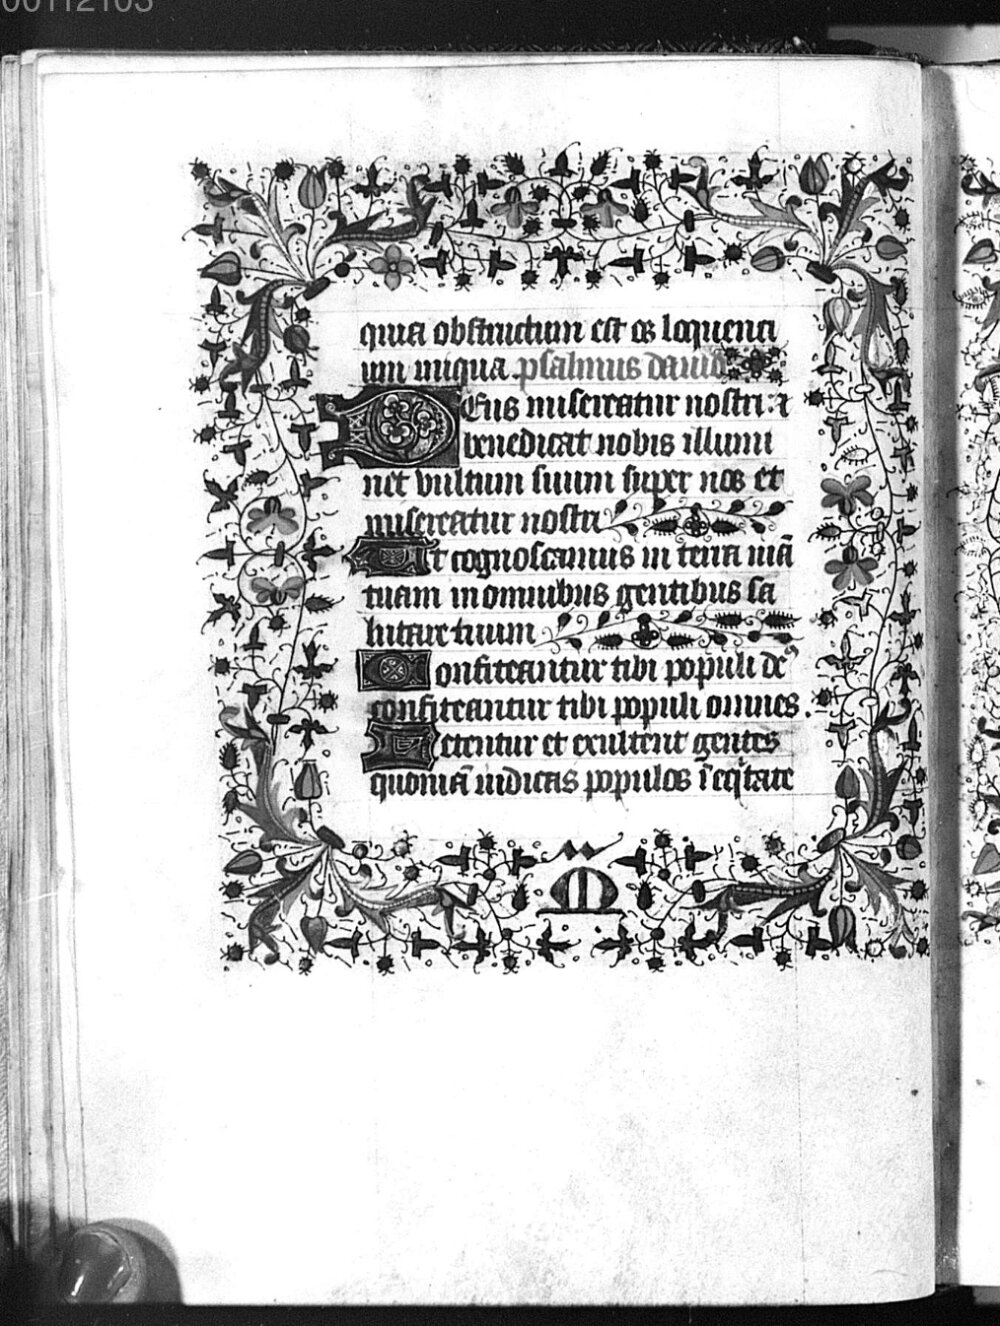 00112103
quia obstructum est os loquenci
um iniqua. psalmus dauid
Deus misereatur nostri: ⁊
benedicat nobis illumi
net vultum suum super nos et
misereatur nostri
Ut cognoscamus in terra uiā
tuam in omnibus gentibus sa
lutare tuum
Confiteantur tibi populi deꝰ
confiteantur tibi populi omnes.
Letentur et exultent gentes
quoniā iudicas populos ī eq̄tate
M